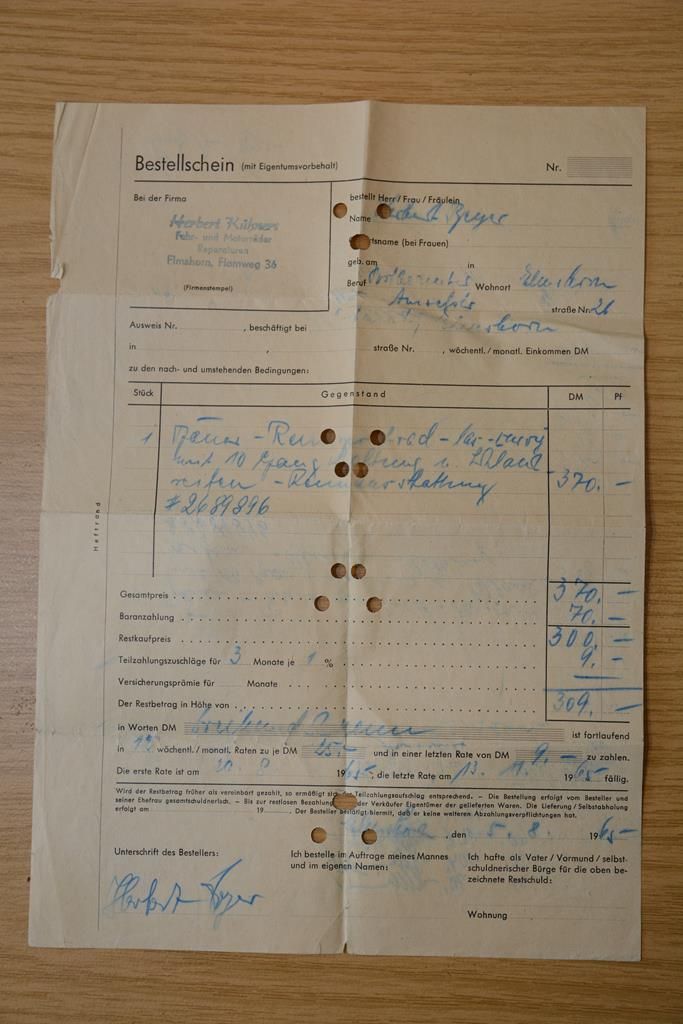 Bestellschein (mit Eigentumsvorbehalt) Nr.
Bei der Firma
Fahr- und Motorräder
Reparaturen
Elmshorn, Flamweg 36
(Firmenstempel)
bestellt Herr / Frau / Fräulein
Name Beyer
(bei Frauen)
geb. am in
Beruf Wohnort Elmshorn
straße Nr. 26
Elmshorn
Ausweis Nr. , beschäftigt bei
in , straße Nr. , wöchentl. / monatl. Einkommen DM
zu den nach- und umstehenden Bedingungen:
Stück Gegenstand DM Pf
1
mit 10 Gang u. 370. —
reifen -
# 2689896
Heftrand
Gesamtpreis 370. —
Baranzahlung 70. —
Restkaufpreis 300. —
Teilzahlungszuschläge für 3 Monate je 1 % 9. —
Versicherungsprämie für Monate
Der Restbetrag in Höhe von 309. —
in Worten DM ist fortlaufend
in wöchentl. / monatl. Raten zu je DM 25.- und in einer letzten Rate von DM 9. — zu zahlen.
Die erste Rate ist am 8 1965, die letzte Rate am 13. 1965 fällig.
Wird der Restbetrag früher als vereinbart gezahlt, so ermäßigt sich der Teilzahlungsaufschlag entsprechend. — Die Bestellung erfolgt vom Besteller und
seiner Ehefrau gesamtschuldnerisch. — Bis zur restlosen Bezahlung der Verkäufer Eigentümer der gelieferten Waren. Die Lieferung / Selbstabholung
erfolgt am 19 . Der Besteller bestätigt hiermit, daß er keine weiteren Abzahlungsverpflichtungen hat.
, den 5. 8. 1965
Unterschrift des Bestellers:
Ich bestelle im Auftrage meines Mannes
und im eigenen Namen:
Ich hafte als Vater / Vormund / selbst-
schuldnerischer Bürge für die oben be-
zeichnete Restschuld:
Herbert Beyer
Wohnung